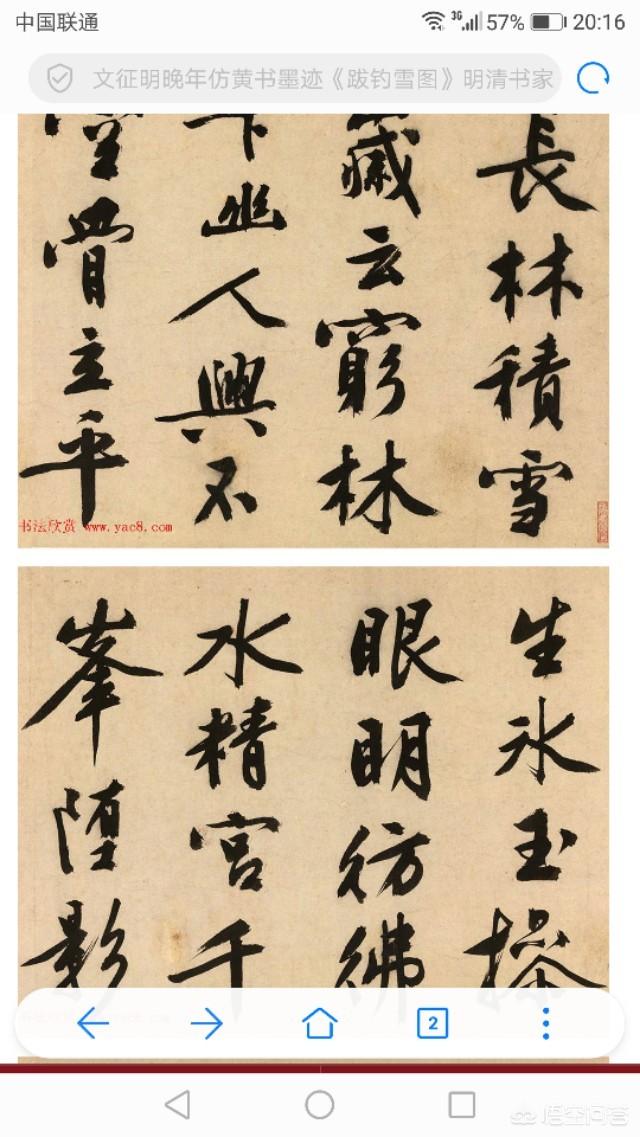 中国联通
3G 57% 20:16
文征明晚年仿黄书墨迹《跋钓雪图》明清书家
長林積雪
歲云窮林
幽人興不
骨立平
书法欣赏 www.yac8.com
生氷玉操
眼明彷彿
水精宮千
峯墮影
2
悟空问答